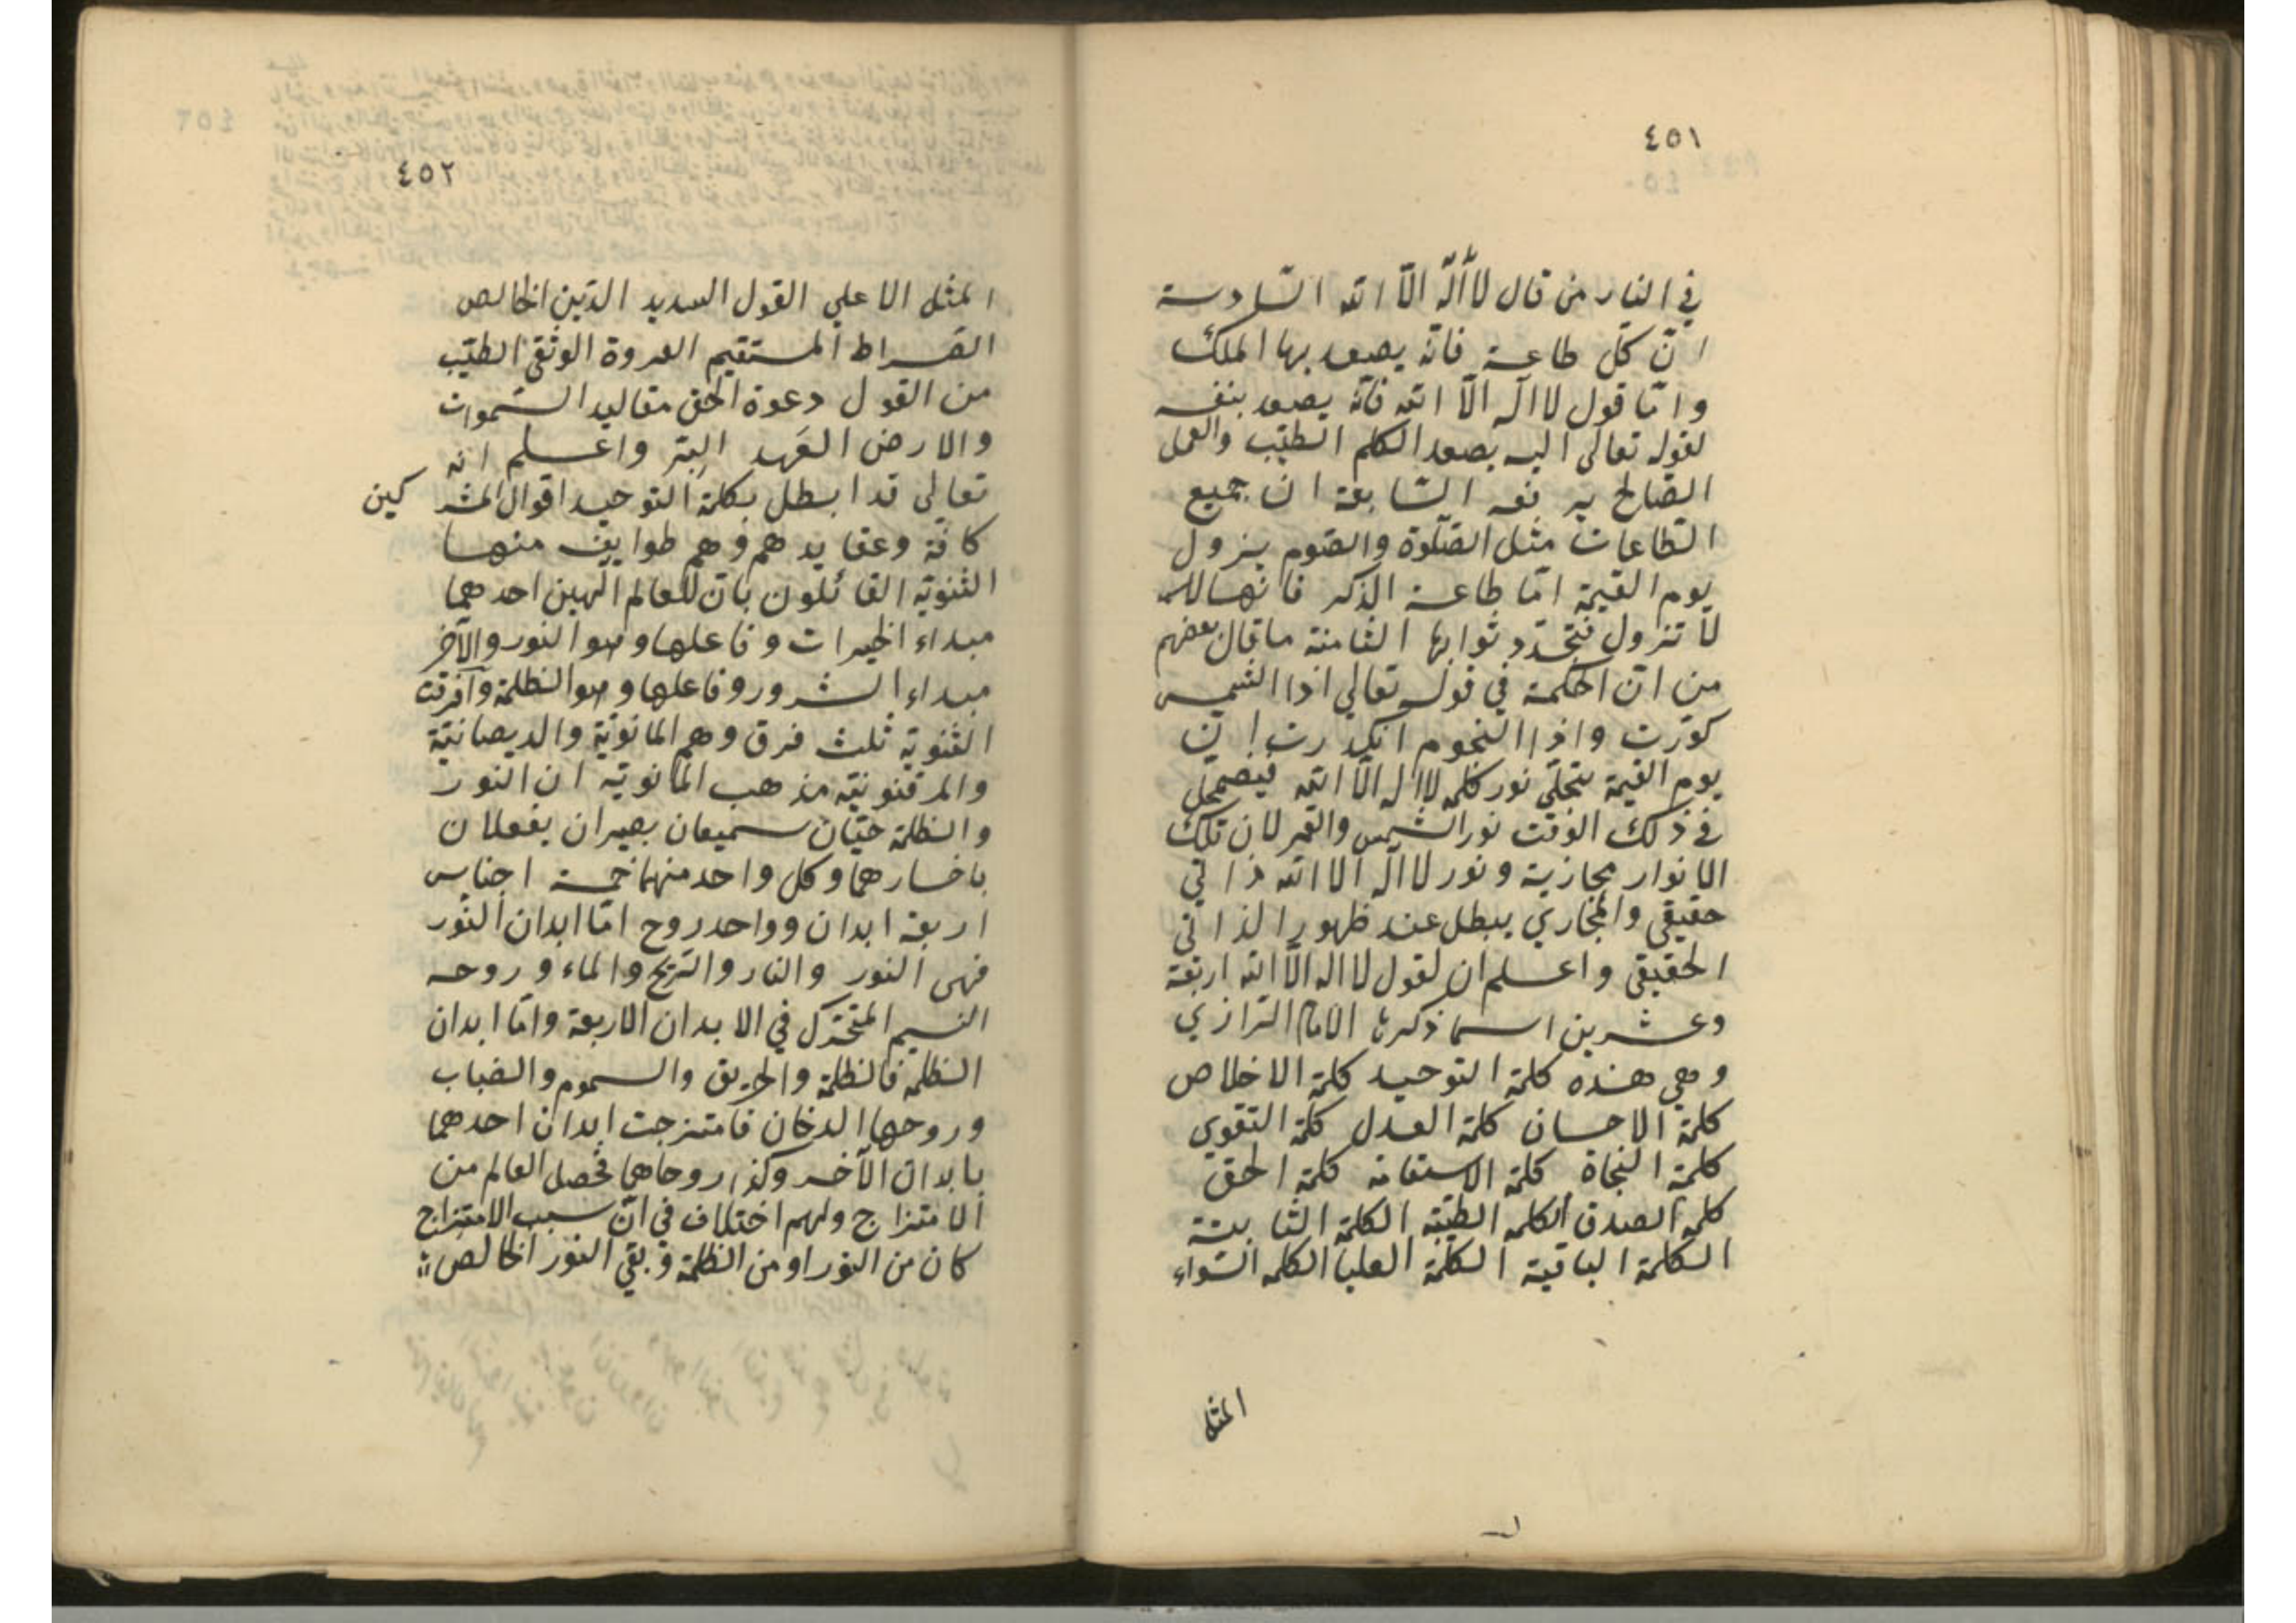 ٤٥١
في النار من قال لا أله الّا الله السّادسة
انّ كلّ طاعة فانّه يصعد بها الملك
وامّا قول لا اله الّا الله فانّه يصعد بنفسه
لقوله تعالى اليه يصعد الكلم الطيّب والعمل
الصّالح يرفعه السّابعة ان جميع
الطّاعات مثل الصّلوة والصّوم يزول
يوم القيمة امّا طاعة الذكر فانها
لا تزول فتجدّد ثوابها الثامنة ما قال بعضهم
من انّ الحكمة في قوله تعالى اذا الشمس
كوّرت واذا النجوم انكدرت انّ
يوم القيمة يتجلّي نور كلمه لا اله الّا الله فيضمحلّ
في ذلك الوقت نور الشمس والقمر لان تلك
الانوار مجازية ونور لا اله الا الله ذاتي
حقيقي والمجازي يبطل عند ظهور الذاتي
الحقيقي واعلم ان لقول لا اله الّا الله اربعة
وعشرين اسما ذكرها الامام الرازي
وهي هذه كلمة التوحيد كلمة الاخلاص
كلمة الاحسان كلمة العدل كلمة التقوي
كلمة النجاة كلمة الاستقامة كلمة الحق
كلمة الصدق الكلمه الطيّبه الكلمة الثابتة
الكلمة الباقية الكلمة العليا الكلمه السّواء
المثل
٤٥٢
المثل الاعلي القول السديد الدّين الخالص
الصّراط المستقيم العروة الوثقي الطيّب
من القول دعوة الحق مقاليد السّموات
والارض العهد البرّ واعلم انه
تعالي قد ابطل بكلمة التوحيد اقوال المشركين
كافة وعقايدهم وهم طوايف منها
الثنويّه القائلون بانّ للعالم الهين احدهما
مبداء الخيرات وفاعلها وهو النور والآخر
مبداء الشرور وفاعلها وهو الظلمة وافرقت
الثنويّه ثلث فرق وهم المانويّة والديصانيّة
والمرقنونيّه مذهب المانويّه ان النور
والظلمة حيّان سميعان بصيران يفعلان
باختيارهما وكل واحد منهما خمسة اجناس
اربعة ابدان وواحد روح امّا ابدان النّور
فهى النور والنار والرّيح والماء وروحه
النسيم المتحرّك في الابدان الاربعة وامّا ابدان
الظلمة فالظلمة والحريق والسموم والضباب
وروحها الدخان فامتزجت ابدان احدهما
بابدان الآخر وكذا روحاهما فحصل العالم من
الامتزاج ولهم اختلاف في انّ سبب الامتزاج
كان من النور او من الظلمة وبقي النور الخالص